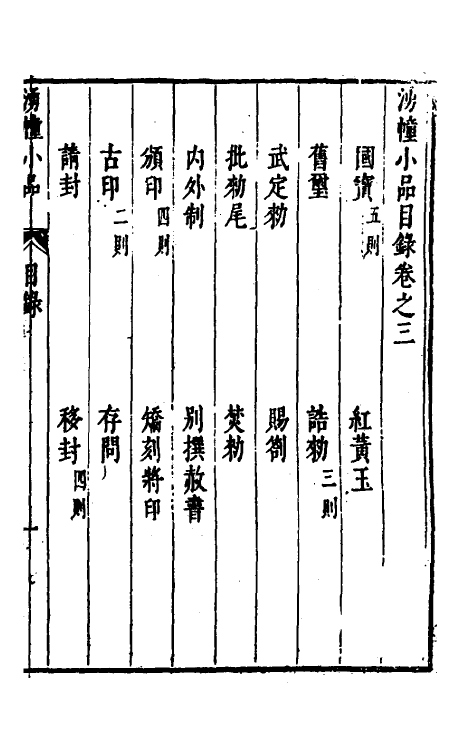 湧幢小品目錄卷之三
國寶五則　紅黃玉
舊璽　誥勑三則
武定勑　賜劄
批勑尾　焚勑
內外制　別撰赦書
頒印四則　矯刻將印
古印二則　存問
請封　移封四則
湧幢小品　目錄　一